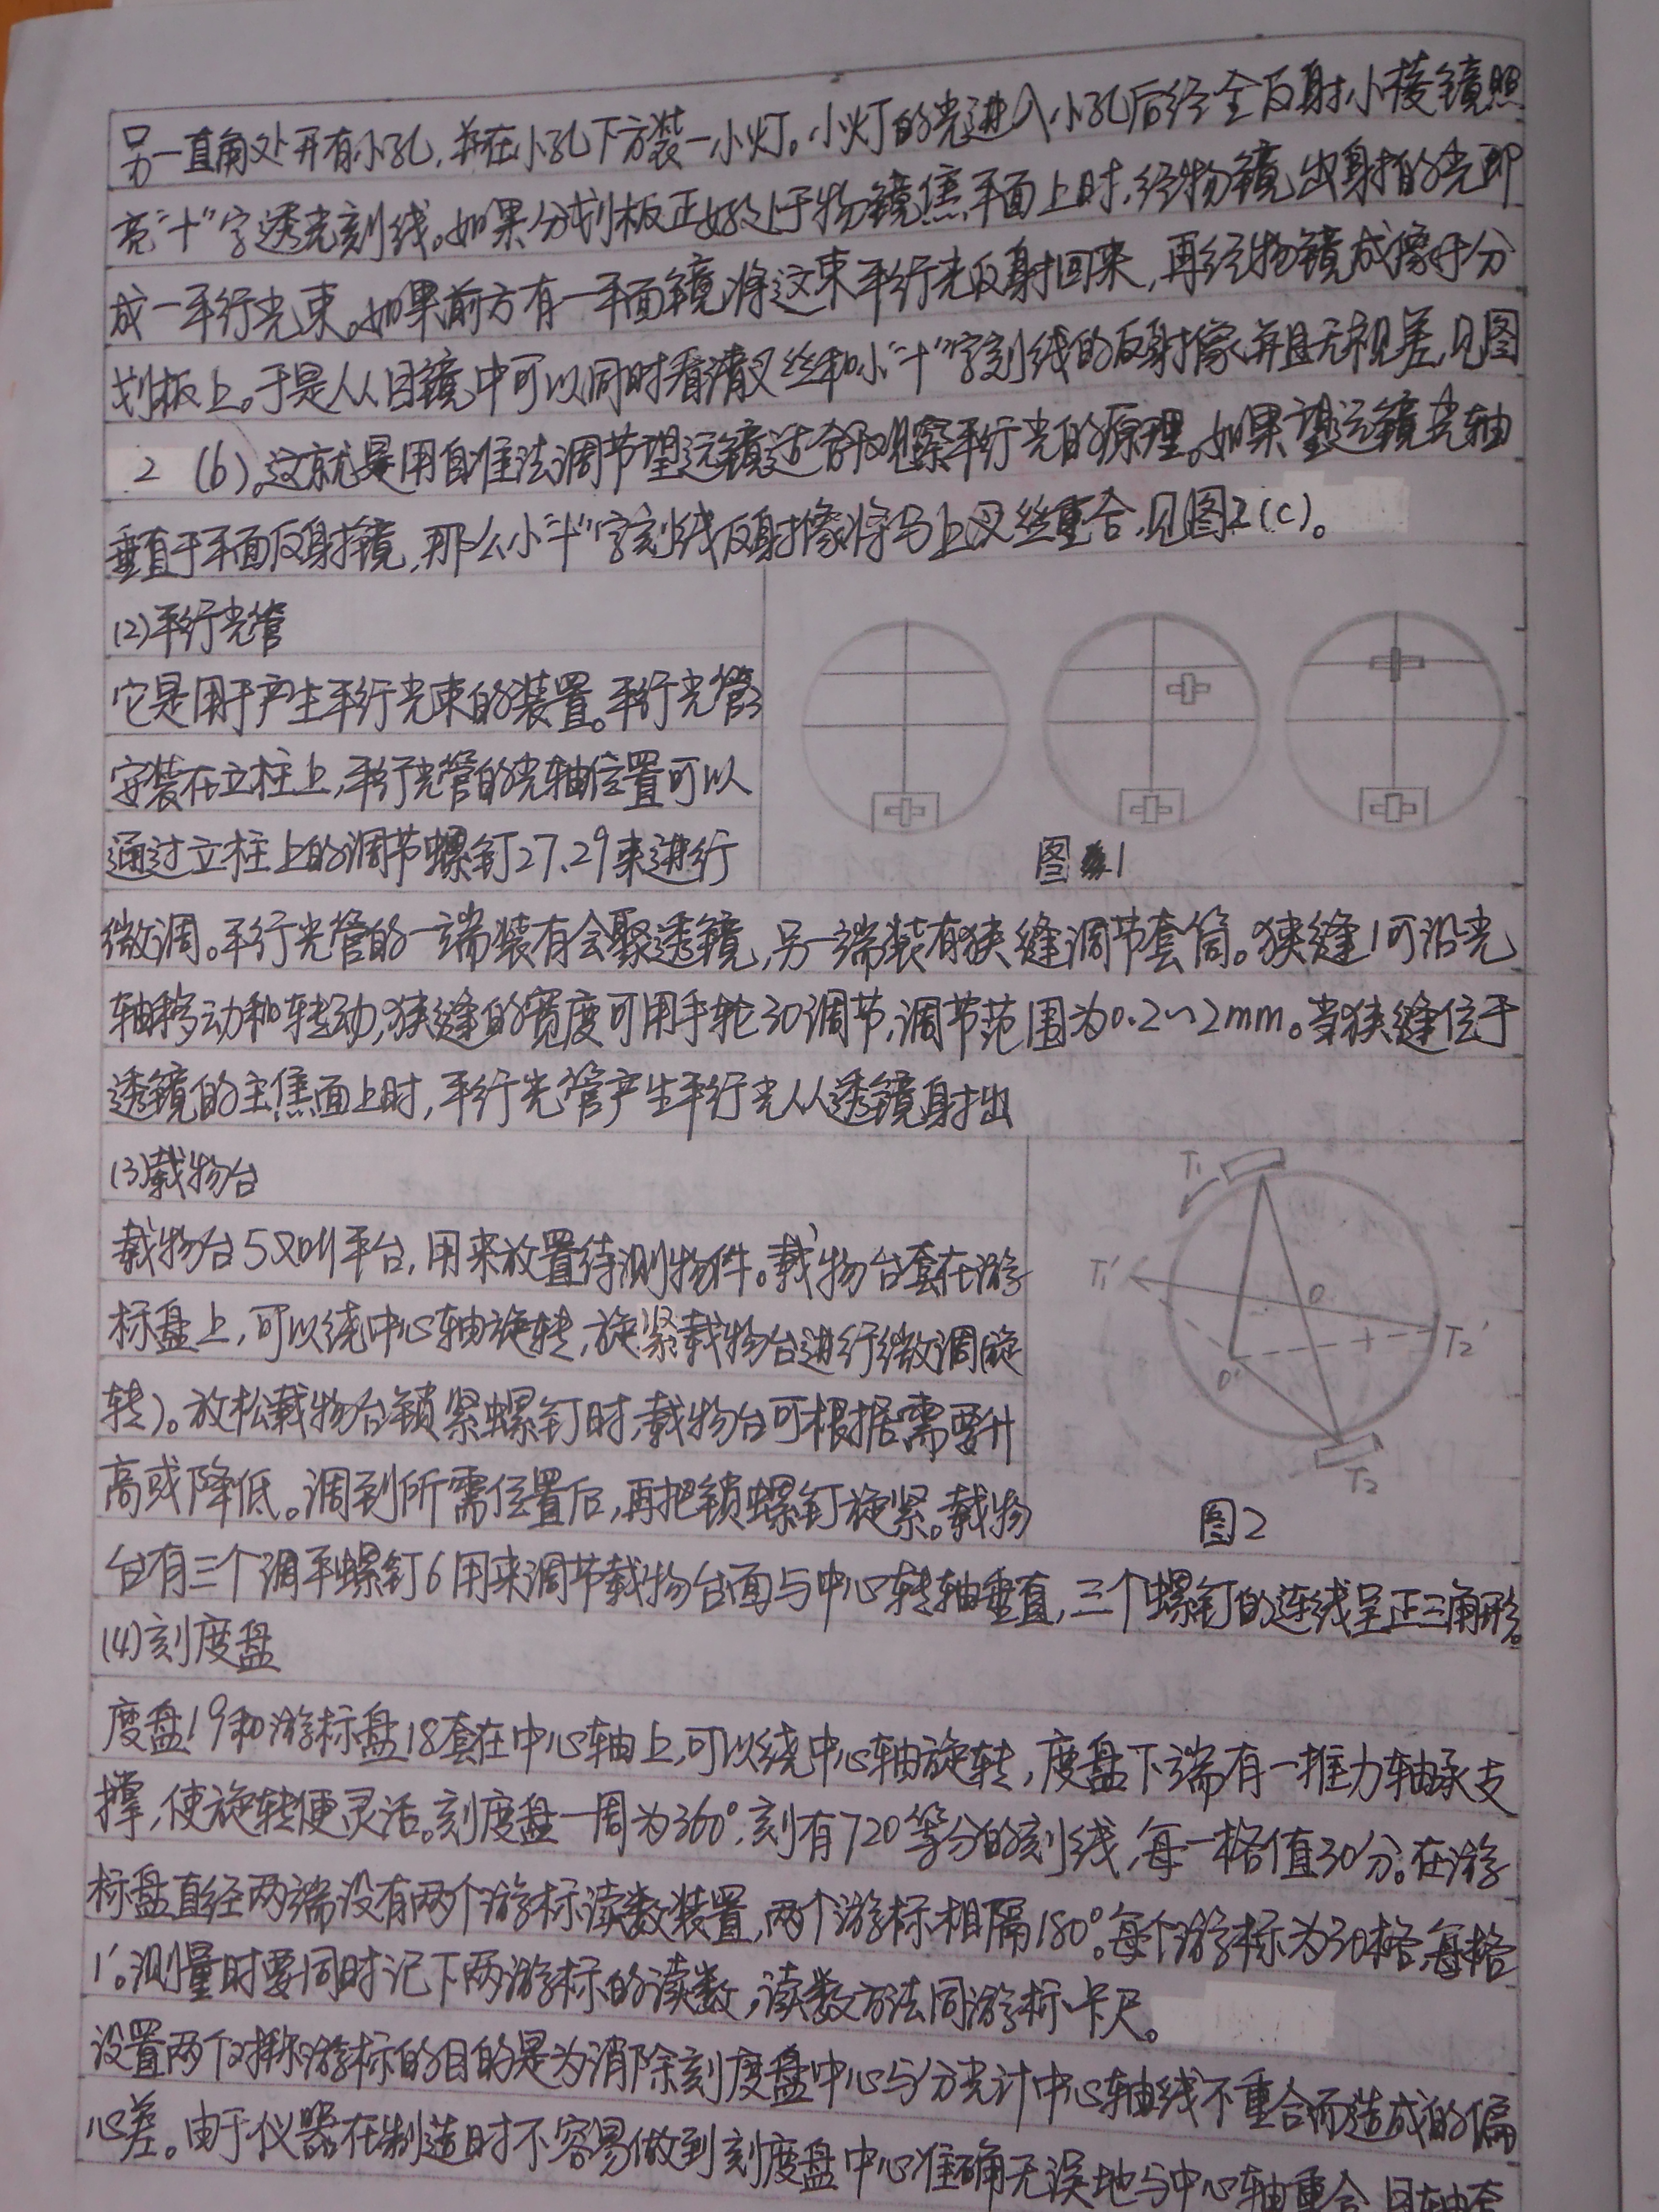 另一直角处开有小孔,并在小孔下方装一小灯。小灯的光进入小孔后经全反射小棱镜照
亮“十”字透光刻线。如果分划板正好处于物镜焦平面上时,经物镜出射的光即
成一平行光束。如果前方有一平面镜将这束平行光反射回来,再经物镜成像于分
划板上。于是从目镜中可以同时看清叉丝和小“十”字刻线的反射像,并且无视差,见图
2 (b)。这就是用自准法调节望远镜适合观察平行光的原理。如果望远镜光轴
垂直于平面反射镜,那么小“十”字刻线反射像将与上叉丝重合,见图2(c)。
(2)平行光管
它是用于产生平行光束的装置。平行光管
安装在立柱上,平行光管的光轴位置可以
通过立柱上的调节螺钉27、29来进行
图1
微调。平行光管的一端装有会聚透镜,另一端装有狭缝调节套筒。狭缝1可沿光
轴移动和转动,狭缝的宽度可用手轮30调节,调节范围为0.2~2mm。当狭缝位于
透镜的主焦面上时,平行光管产生平行光从透镜射出
(3)载物台
载物台5又叫平台,用来放置待测物件。载物台套在游
标盘上,可以绕中心轴旋转,旋紧载物台进行微调旋
转)。放松载物台锁紧螺钉时,载物台可根据需要升
高或降低。调到所需位置后,再把锁螺钉旋紧。载物
T₁
T₁'
O
T₂'
O'
T₂
图2
台有三个调平螺钉6用来调节载物台面与中心转轴垂直,三个螺钉的连线呈正三角形。
(4)刻度盘
度盘19和游标盘18套在中心轴上,可以绕中心轴旋转,度盘下端有一推力轴承支
撑,使旋转便灵活。刻度盘一周为360°,刻有720等分的刻线,每一格值30分。在游
标盘直径两端设有两个游标读数装置,两个游标相隔180°。每个游标为30格,每格
1′。测量时要同时记下两游标的读数,读数方法同游标卡尺。
设置两个对称游标的目的是为消除刻度盘中心与分光计中心轴线不重合而造成的偏
心差。由于仪器在制造时不容易做到刻度盘中心准确无误地与中心轴重合,且轴套